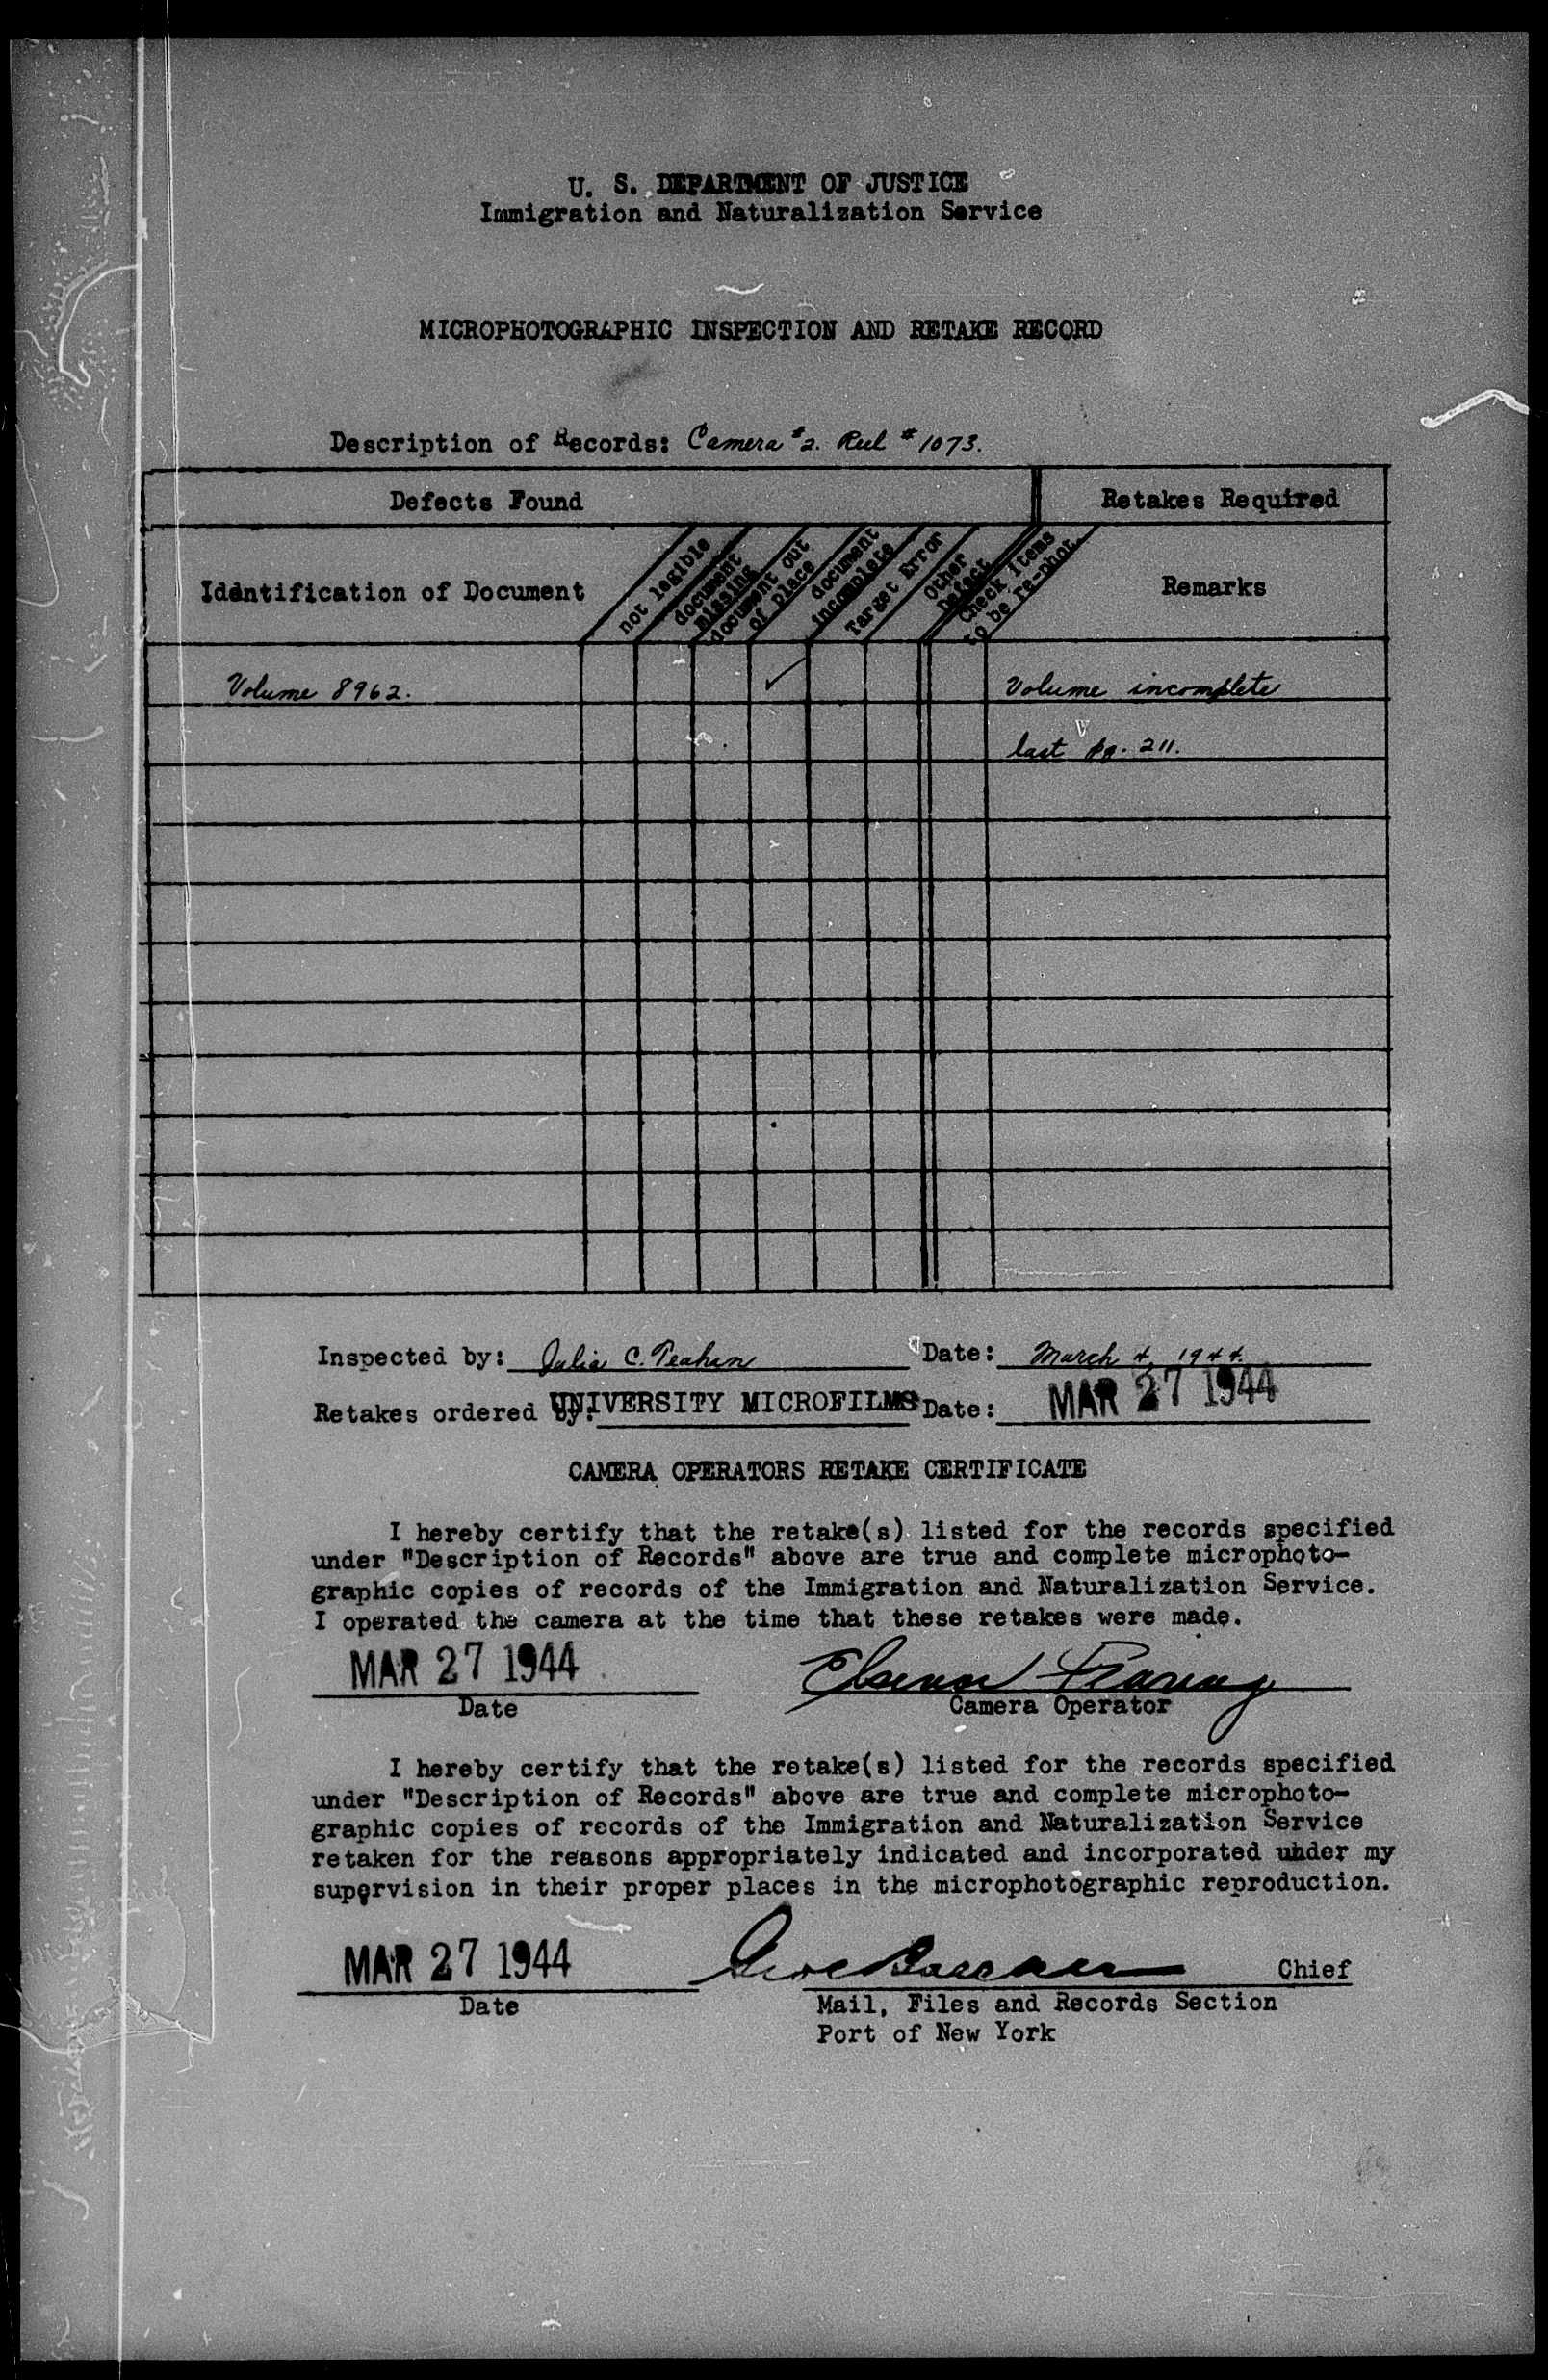 U. S. DEPARTMENT OF JUSTICE
Immigration and Naturalization Service
MICROPHOTOGRAPHIC INSPECTION AND RETAKE RECORD
Description of Records: Camera #2. Reel #1073.
Defects Found
Retakes Required
Identification of Document
not legible
document
missing
document out
of place
document
incomplete
Target Error
Other
Defect
Check Items
to be re-phot.
Remarks
Volume 8962. ✓ Volume incomplete
last pg. 211.
Inspected by: Julia C. Date: March 4, 1944.
Retakes ordered by: UNIVERSITY MICROFILMS Date: MAR 27 1944
CAMERA OPERATORS RETAKE CERTIFICATE
I hereby certify that the retake(s) listed for the records specified
under "Description of Records" above are true and complete microphoto-
graphic copies of records of the Immigration and Naturalization Service.
I operated the camera at the time that these retakes were made.
MAR 27 1944
Date
Camera Operator
I hereby certify that the retake(s) listed for the records specified
under "Description of Records" above are true and complete microphoto-
graphic copies of records of the Immigration and Naturalization Service
retaken for the reasons appropriately indicated and incorporated under my
supervision in their proper places in the microphotographic reproduction.
MAR 27 1944
Chief
Date
Mail, Files and Records Section
Port of New York